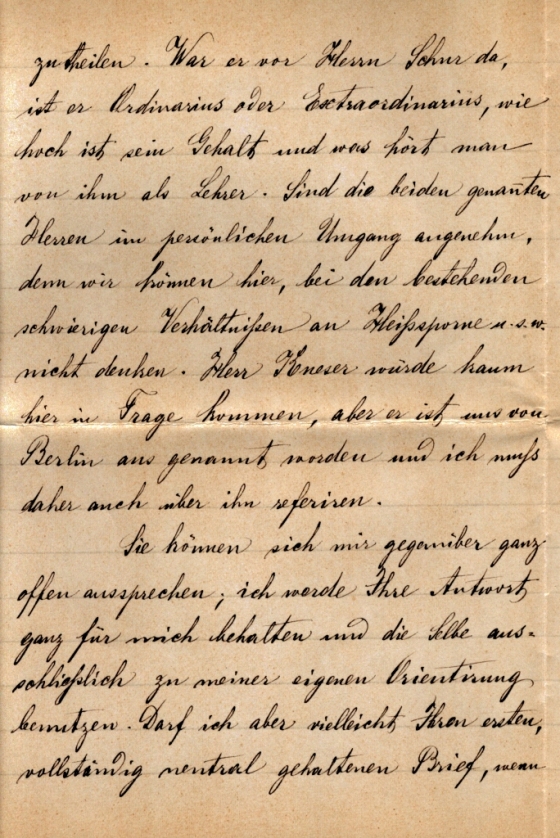 zutheilen. War er vor Herrn Schur da,
ist er Ordinarius oder Extraordinarius, wie
hoch ist sein Gehalt und was hört man
von ihm als Lehrer. Sind die beiden genañten
Herren im persönlichen Umgang angenehm,
denn wir können hier, bei den bestehenden
schwierigen Verhältnißen an Heißsporne u.s.w.
nicht denken. Herr Kneser würde kaum
hier in Frage kommen, aber er ist uns von
Berlin aus genannt worden und ich muß
daher auch über ihn referiren.
Sie können sich mir gegenüber ganz
offen aussprechen; ich werde Ihre Antwort
ganz für mich behalten und die selbe aus=
schließlich zu meiner eigenen Orientirung
benutzen. Darf ich aber vielleicht Ihren ersten,
vollständig neutral gehaltenen Brief, wenn